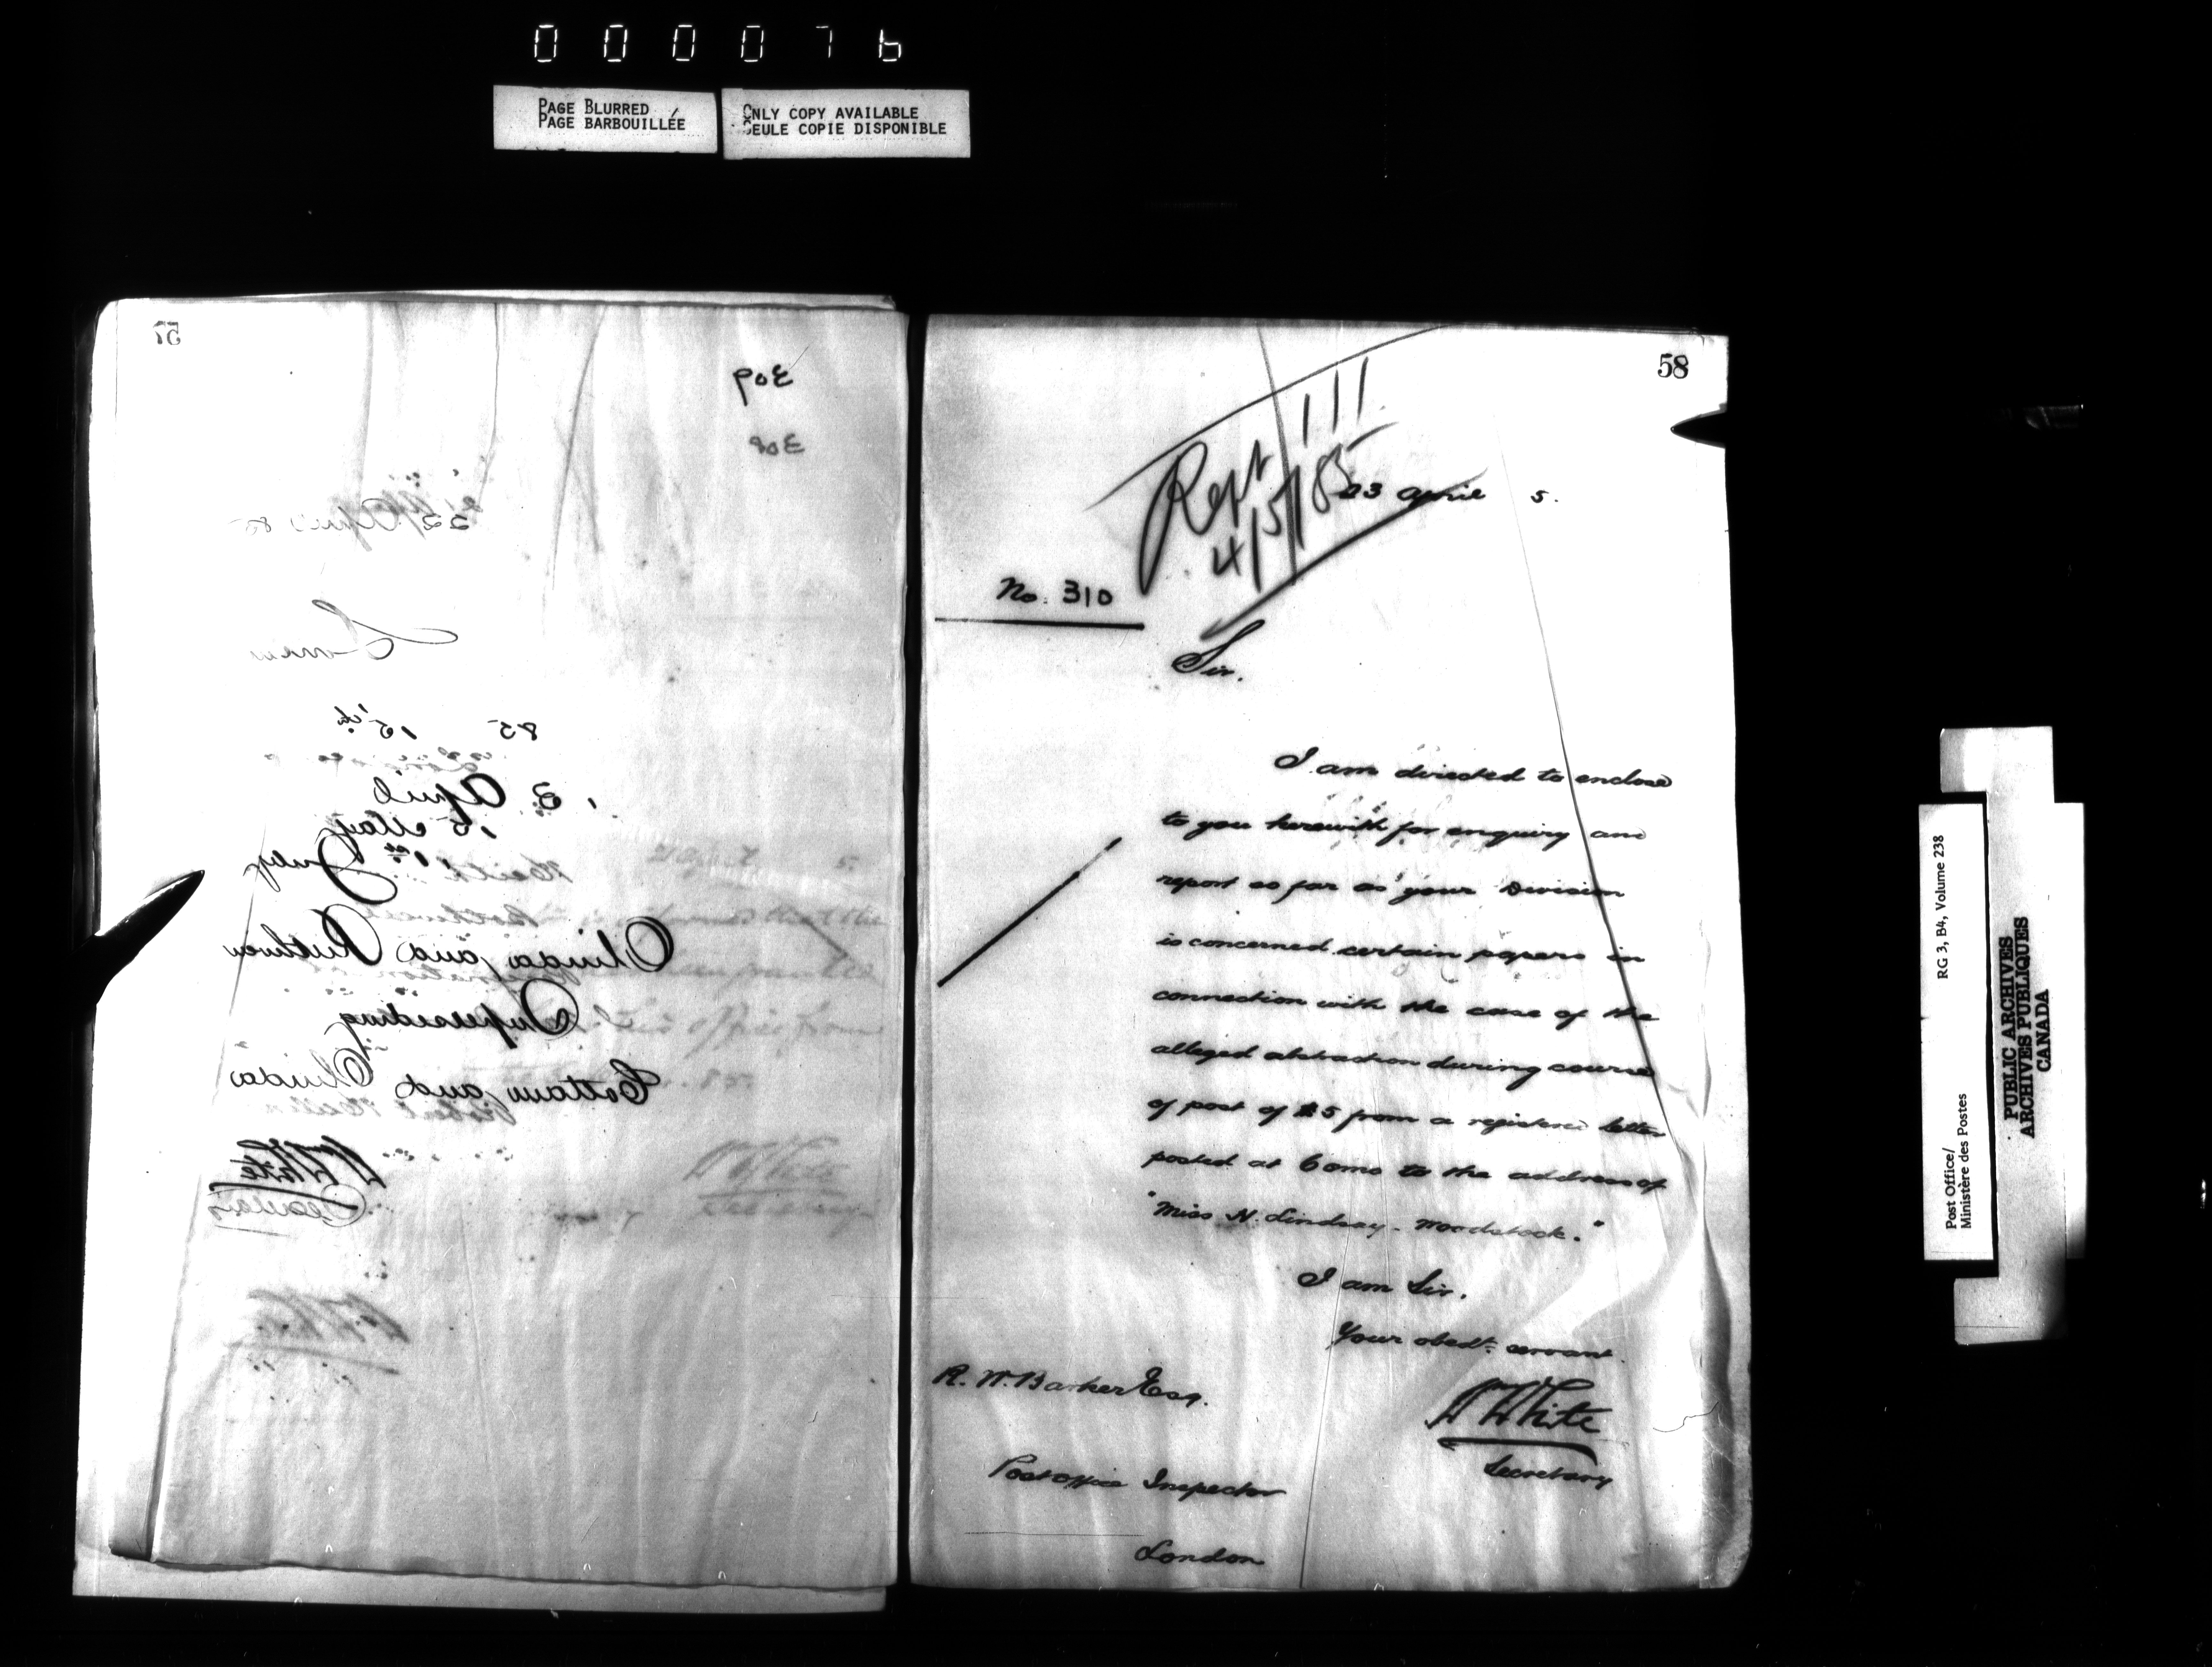 000076
PAGE BLURRED
PAGE BARBOUILLÉE
ONLY COPY AVAILABLE
SEULE COPIE DISPONIBLE
57
309
308
22 April 85
85 15th
13 April
15 May
1st July
Olinda and Ruthven
Superseding
Cottam and Olinda
WWhite
Secretary
58
Rept 111
4/5/85
23 April 5.
No. 310
Sir.
I am directed to enclose
to you herewith for enquiry and
report as far as your Division
is concerned certain papers in
connection with the case of the
alleged abstraction during course
of post of $5 from a registered letter
posted at Como to the address of
"Miss N. Lindsay - Woodstock."
I am Sir.
Your obedt. servant.
WWhite
Secretary
R. W. Barker Esq.
Post Office Inspector
London
Post Office/
Ministère des Postes
RG 3, B4, Volume 238
PUBLIC ARCHIVES
ARCHIVES PUBLIQUES
CANADA